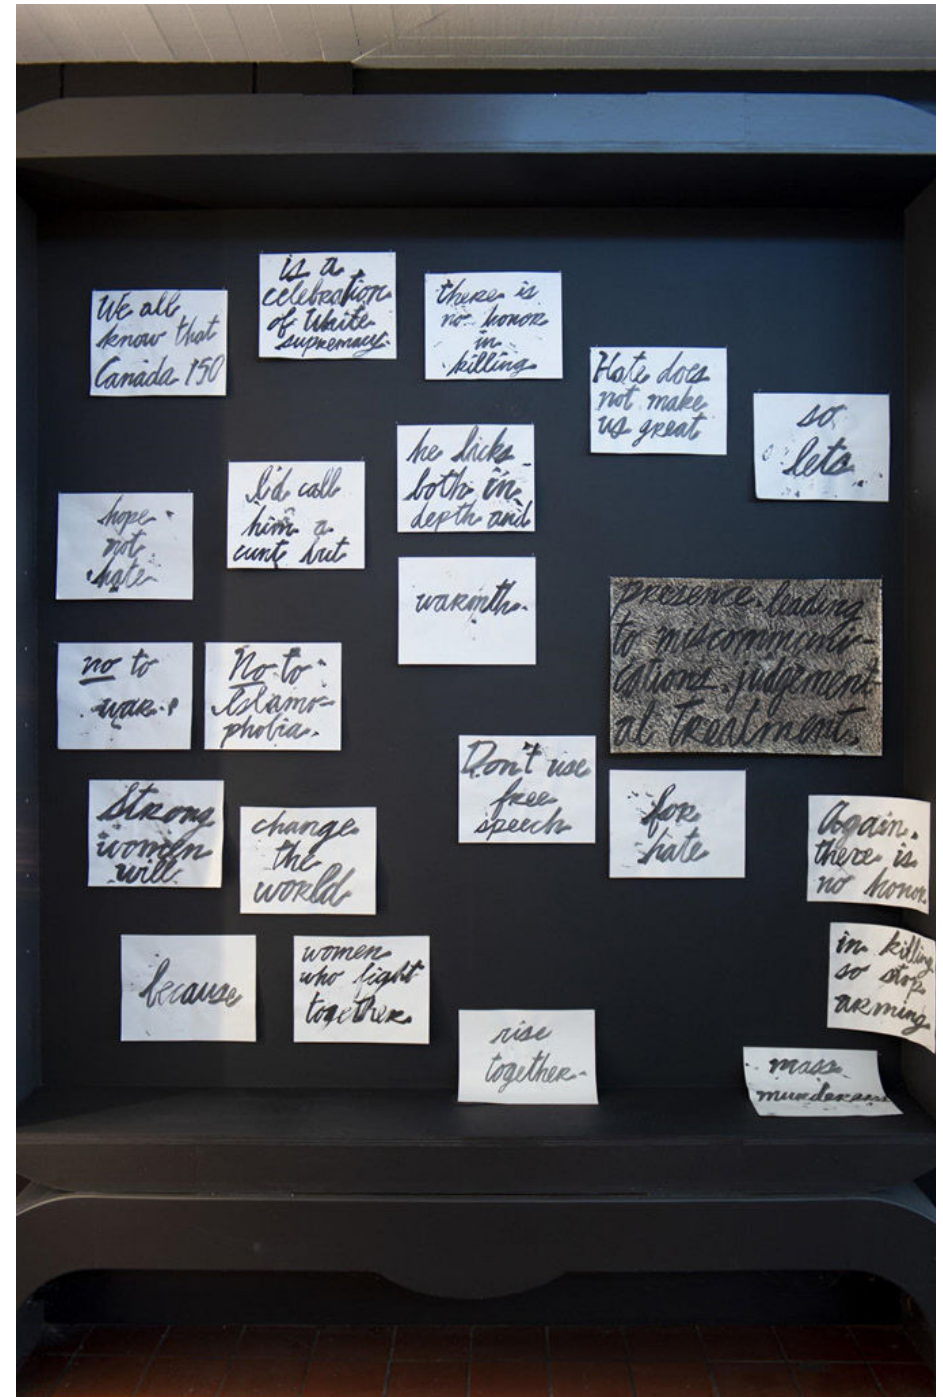 We all
know that
Canada 150
is a
celebration
of White
supremacy.
there is
no honor
in
killing
Hate does
not make
us great
so
lets
hope
not
hate
I'd call
him a
cunt but
he licks
both in
depth and
warmth.
presence leading
to miscommunic-
ations, judgement-
al treatment.
no to
war.
No to
Islamo-
phobia.
Don't use
free
speech
for
hate
Strong
women
will
change
the
world
because
women
who fight
together
rise
together.
Again,
there is
no honor
in killing
so stop
arming
mass
murderers